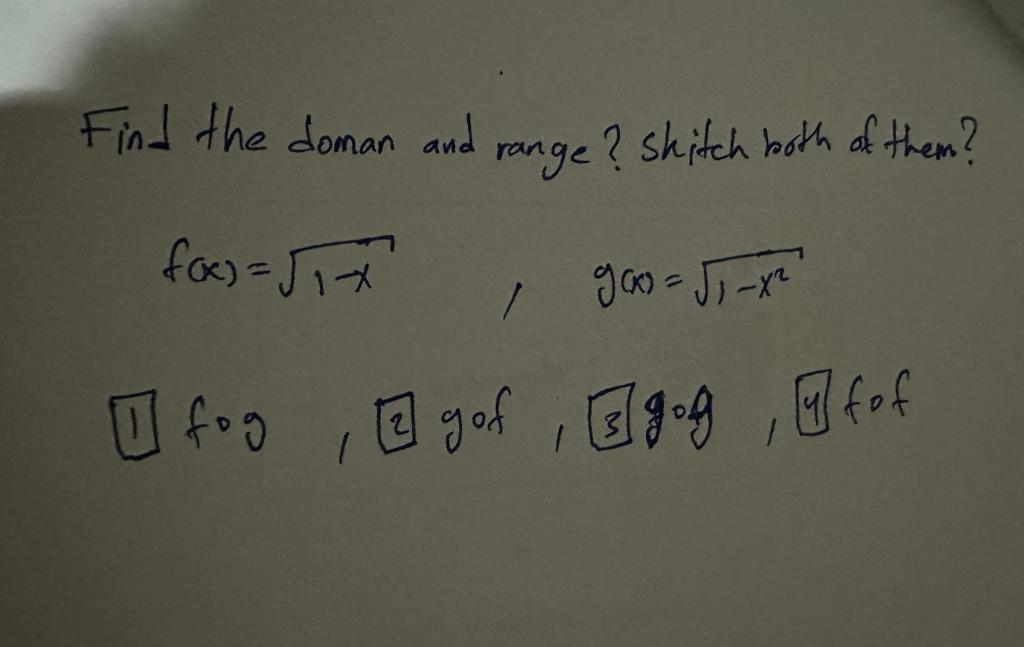 Find the doman and range? Skitch both of them?
f(x) = √1-x , g(x) = √1-x²
1 fog , 2 gof , 3 gog , 4 fof